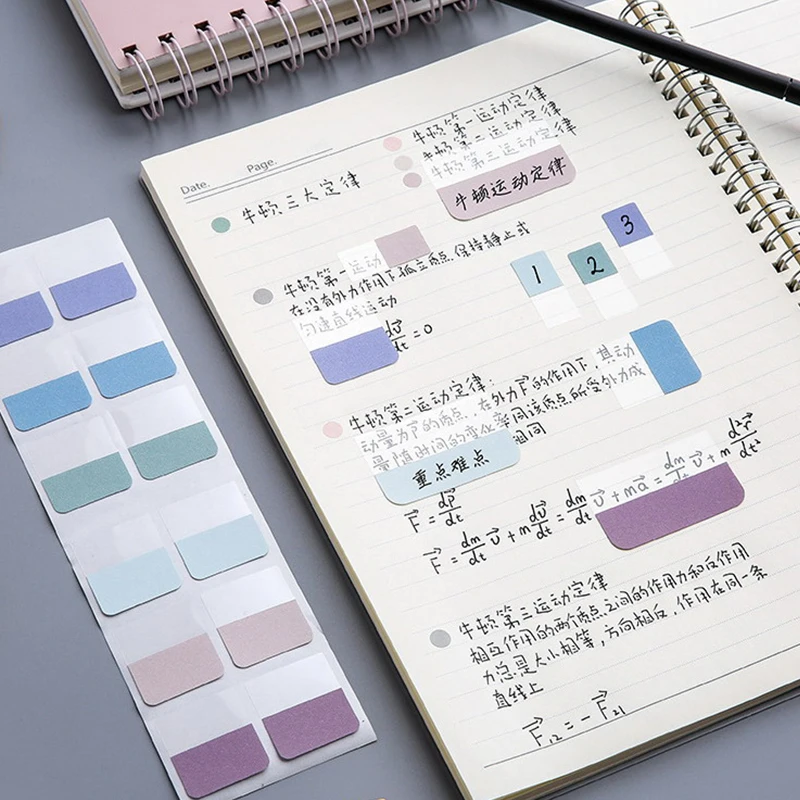 Date.
Page.
牛顿第一运动定律
牛顿第二运动定律
牛顿第三运动定律
牛顿运动定律
牛顿三大定律
牛顿第一运动
在没有外力作用下孤立质点保持静止或
匀速直线运动
dv⃗/dt=0
1
2
3
牛顿第二运动定律:
动量为p⃗的质点,在外力F⃗的作用下,其动
量随时间的变化率同该质点所受外力成
相同
重点难点
F⃗=dp⃗/dt
F⃗=dm/dt v⃗+m dv⃗/dt=dm/dt v⃗+ma⃗=dm/dt v⃗+m d²r⃗/dt²
牛顿第三运动定律
相互作用的两个质点之间的作用力和反作用
力总是大小相等,方向相反,作用在同一条
直线上
F⃗₁₂=-F⃗₂₁